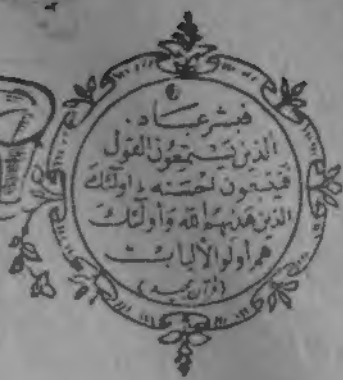 فبشر عباد.
الذين يستمعون القول
فيتبعون احسنه، اولئك
الذين هدىهم الله و اولئك
هم اولوا الألباب
(قرآن مجید)